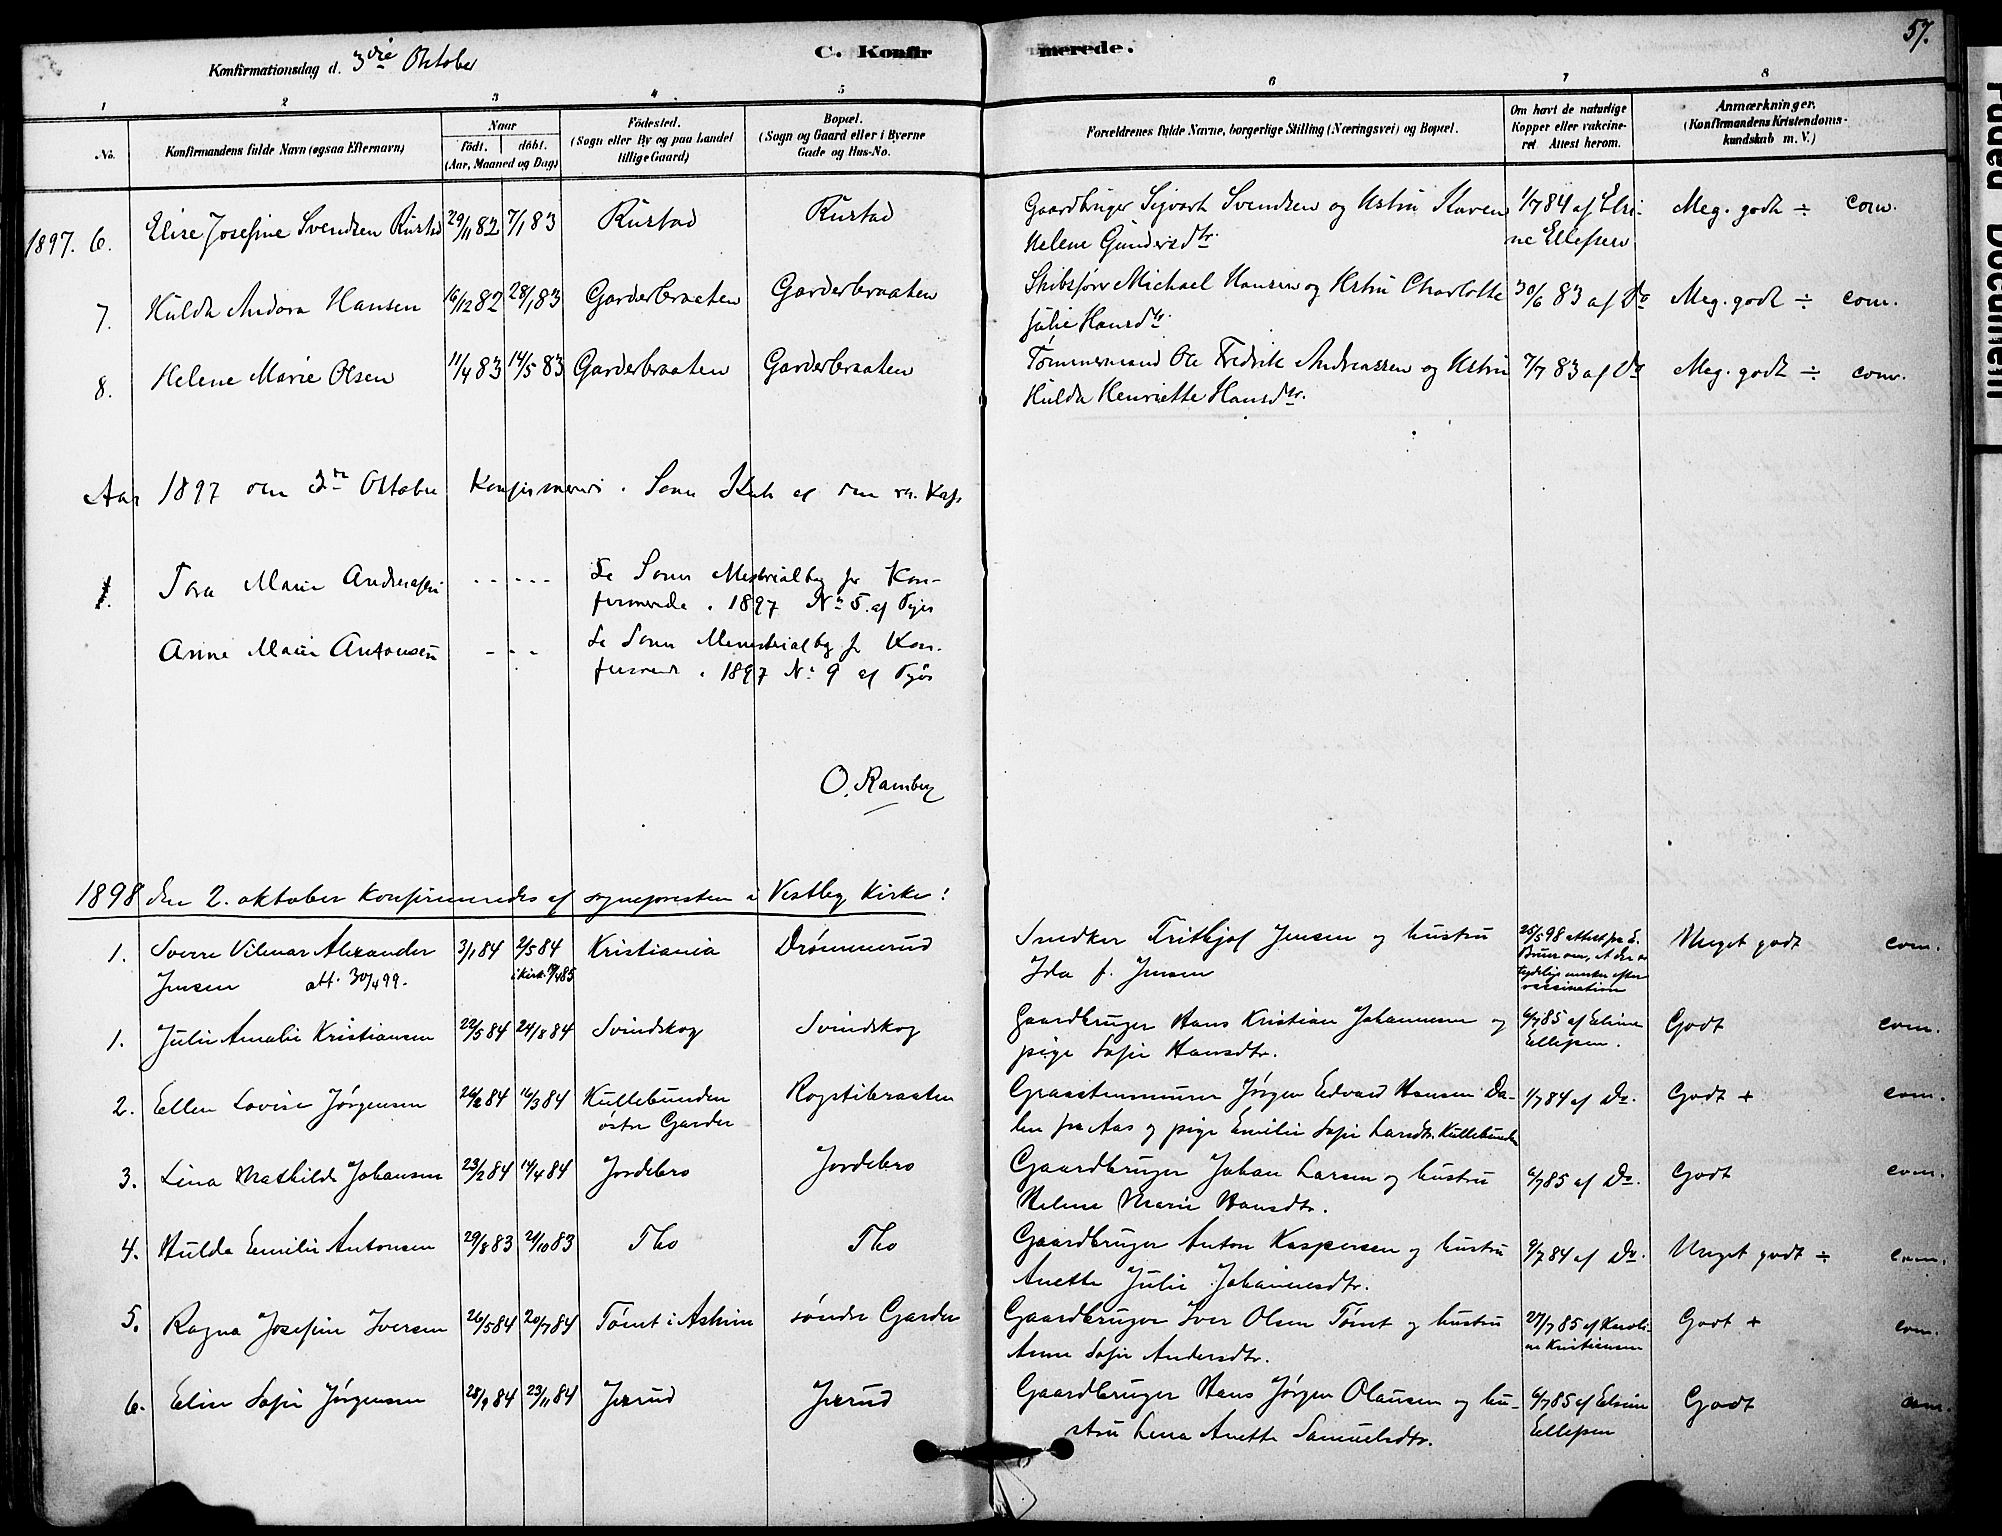 57.
Konfirmationsdag d. 3die Oktober
C. Konfirmerede.
1 2 3 4 5 6 7 8
No. Konfirmandens fulde Navn (ogsaa Efternavn)
Naar født. døbt. (Aar, Maaned og Dag)
Fødested. (Sogn eller By og paa Landet tillige Gaard)
Bopæl. (Sogn og Gaard eller i Byerne Gade og Hus-No.
Forældrenes fulde Navne, borgerlige Stilling (Næringsvei) og Bopæl.
Om havt de naturlige Kopper eller vakcineret Attest herom.
Anmærkninger. (Konfirmandens Kristendomskundskab m. V.)
1897. 6. Elise Josefine Svendsen Rustad 29/11 82 7/1 83 Rustad Rustad Gaardbruger Sigvart Svendsen og Hstru Karen 1/7 84 af Elsi- Meg. godt ÷ com.
Helene Gundersdtr. ne Ellefsen
7. Hulda Andora Hansen 16/12 82 28/1 83 Garderbraaten Garderbraaten Skibsfører Michael Hansen og Hstru Charlotte 30/6 83 af Do Meg. godt ÷ com.
Julie Hansdtr.
8. Helene Marie Olsen 11/4 83 14/5 83 Garderbraaten Garderbraaten Tømmermand Ole Fredrik Andreassen og Hstru 7/7 83 af Do Meg. godt ÷ com.
Hulda Henriette Hansdtr.
Aar 1897 den 3die Oktober Konfirmeret i Soner Kirke af den res. Kap.
1. Tora Marie Andreassen - - - - - Se Soner Ministrialbog for Kon-
firmerede i 1897 No 5. af Piger
Anne Marie Antonsen - - - Se Soner Ministerialbog for Kon-
firmerede i 1897 No 9 af Piger
O. Ramberg
1898 den 2. oktober konfirmeredes af sognepresten i Vestby Kirke:
1. Sverre Vilmar Alexander 3/1 84 2/5 84 Kristiania Drømmerud Snedker Frithjof Jensen og hustru 25/5 98 attest fra E. Meget godt com.
Jensen att. 30/4 99. i kirk. 85 Ida f. Jensen
tydelige merker efter
vaccination
1. Julie Amalie Kristiansen 22/5 84 24/8 84 Svindskog Svindskog Gaardbruger Hans Kristian Johannesen og 6/7 85 af Elsine Godt com.
pige Sofie Hansdtr. Ellefsen.
2. Ellen Lovise Jørgensen 84 16/3 84 Kullebunden Rogstibraaten Graastensmurer Jørgen Edvard Hansen Da- 1/7 84 af Do. Godt + com.
østre Garder len fra Aas og pige Emilie Sofie Larsdtr. Kullebunden
3. Lina Mathilde Johansen 23/2 84 14/4 84 Jordebro Jordebro Gaardbruger Johan Larsen og hustru 6/7 85 af Do. Godt com.
Helene Marie Hansdtr.
4. Hulda Emilie Antonsen 29/8 83 21/10 83 Tho Tho Gaardbruger Anton Kaspersen og hustru 9/7 84 af Do. Meget godt ÷ com.
Anette Julie Johannesdtr.
5. Ragna Josefine Iversen 26/5 84 20/7 84 Tømt i Askim søndre Garder Gaardbruger Iver Olsen Tømt og hustru 27/7 85 af Karoli- Godt + com.
Anne Sofie Andersdtr. ne Kristiansen
6. Elise Sofie Jørgensen 28/9 84 23/11 84 Jexrud Jexrud Gaardbruger Hans Jørgen Olausen og hu- 6/7 85 af Elsine Godt com.
stru Lena Anette Samuelsdtr. Ellefsen
Faded Document